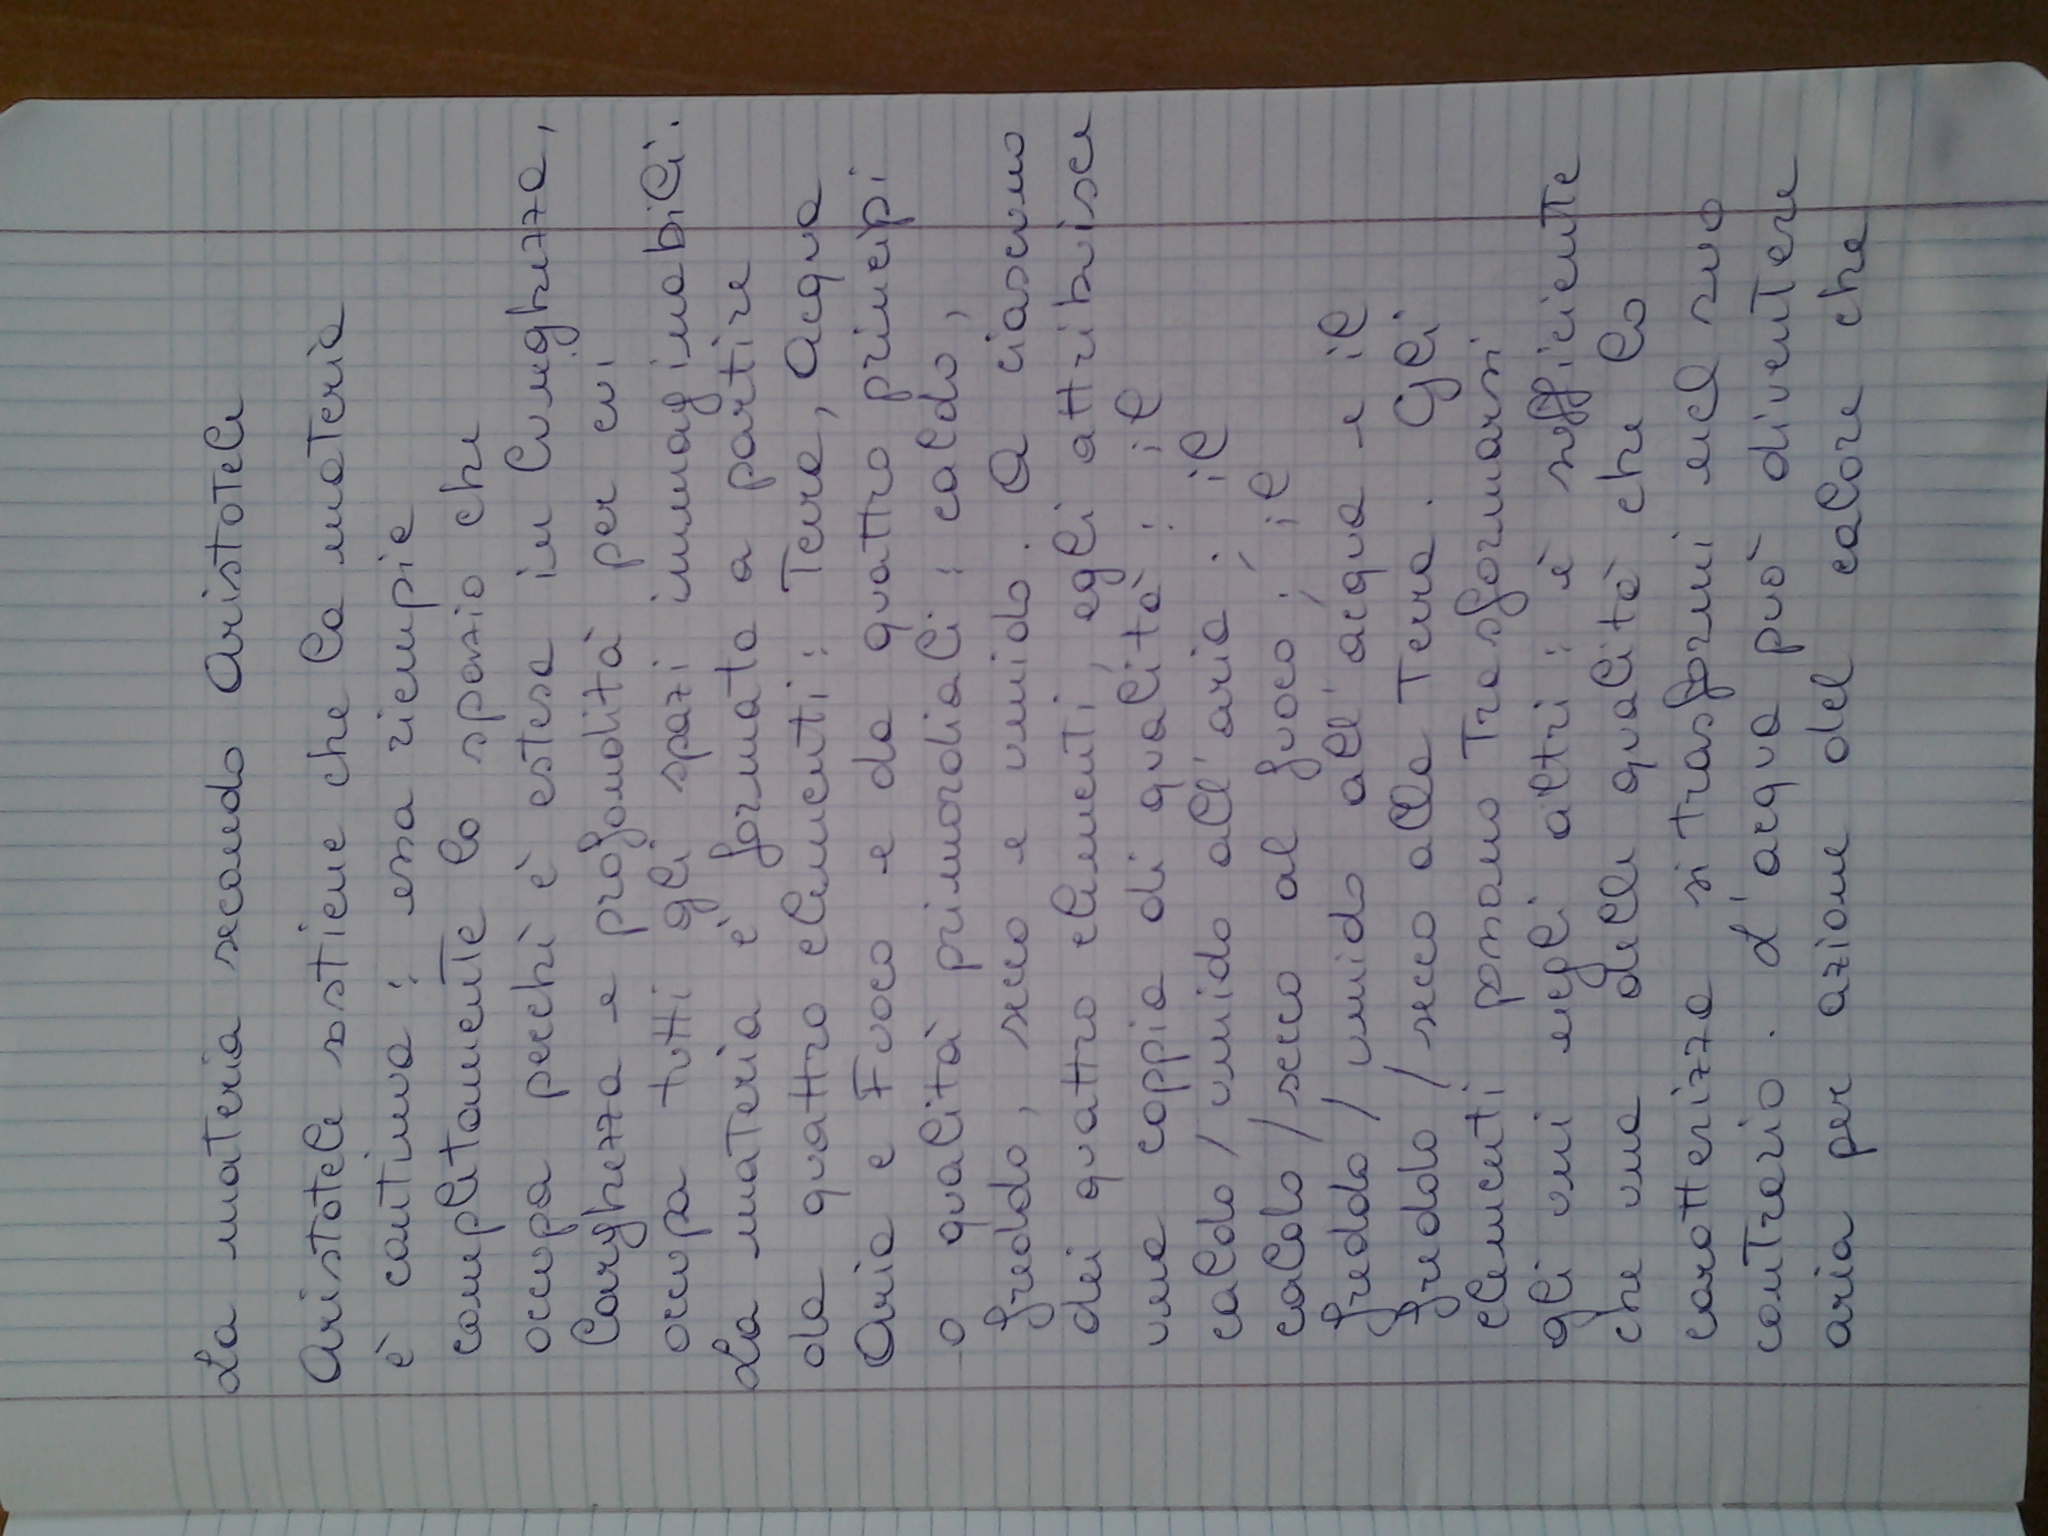 La materia secondo Aristotele
Aristotele sostiene che la materia
è continua: essa riempie
completamente lo spazio che
occupa perché è estesa in lunghezza,
larghezza e profondità per cui
occupa tutti gli spazi immaginabili.
La materia è formata a partire
da quattro elementi: Terra, Acqua
Aria e Fuoco e da quattro principi
o qualità primordiali: caldo,
freddo, secco e umido. A ciascuno
dei quattro elementi, egli attribuisce
una coppia di qualità: il
caldo/umido all'aria; il
caldo/secco al fuoco; il
freddo/umido all'acqua e il
freddo/secco alla Terra. Gli
elementi possono trasformarsi
gli uni negli altri: è sufficiente
che una delle qualità che lo
caratterizza si trasformi nel suo
contrario. L'acqua può diventare
aria per azione del calore che